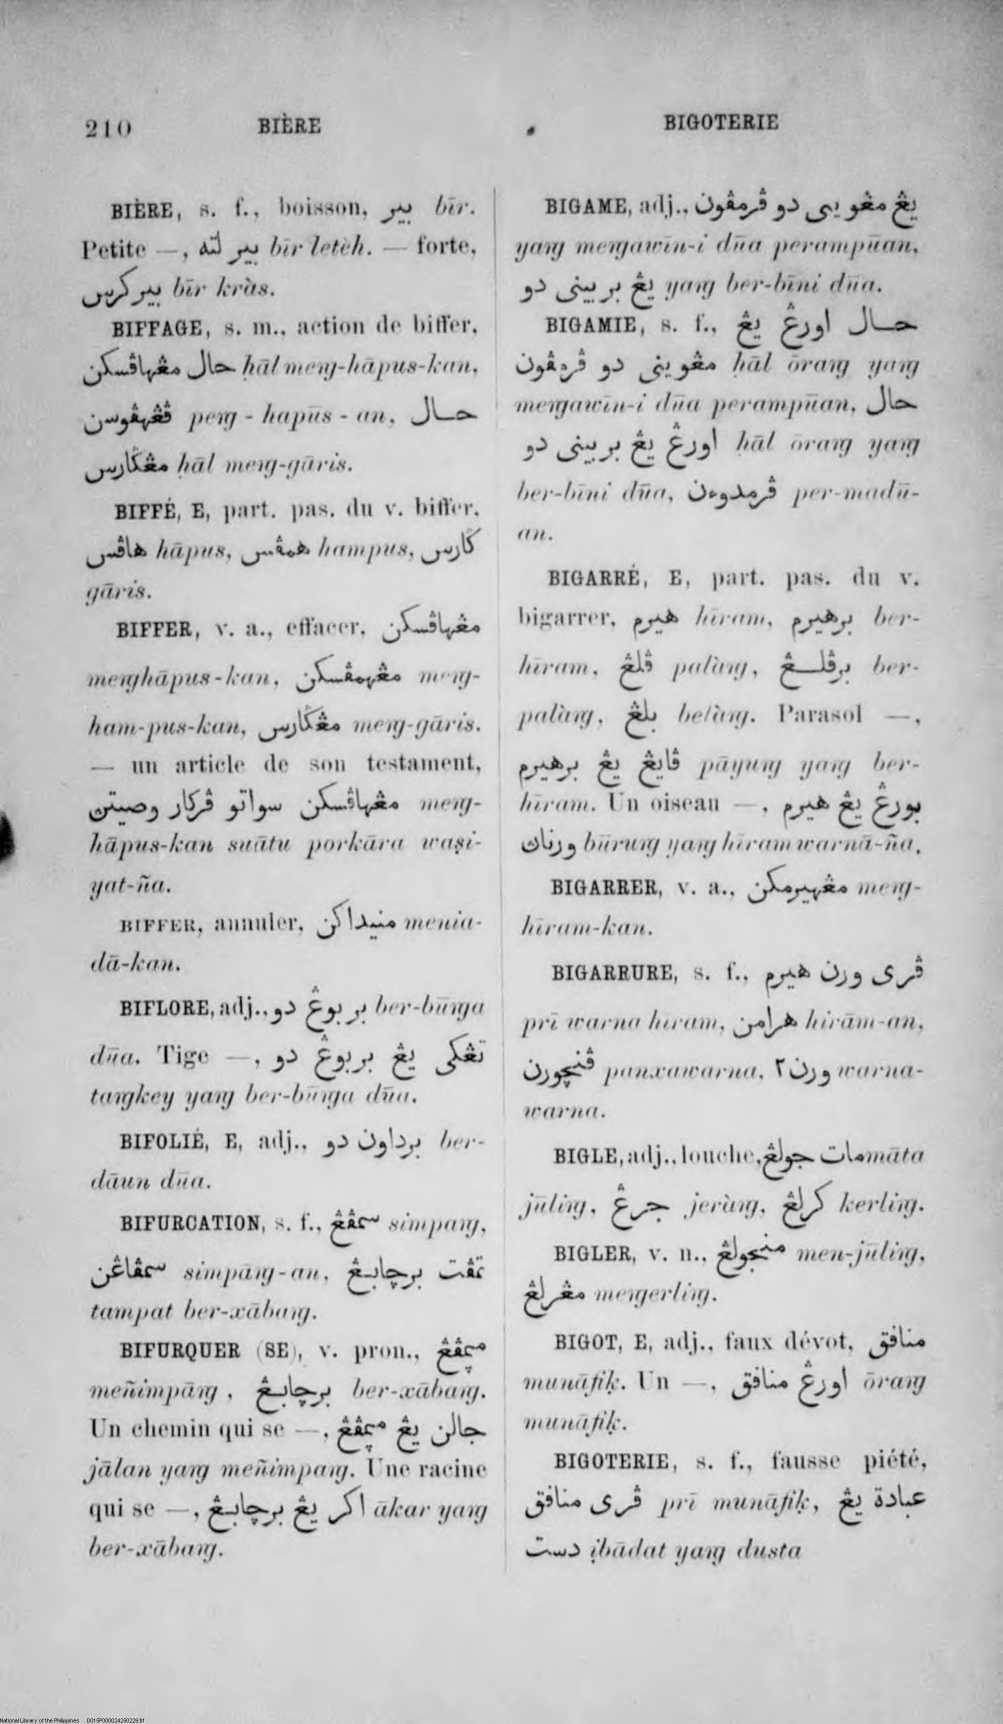 210 BIÈRE
BIGOTERIE
BIÈRE, s. f., boisson, بير bīr.
Petite —, بير لته bīr letèh. — forte,
بير كرس bīr kràs.
BIFFAGE, s. m., action de biffer,
حال مڠهاڤسكن ḥāl meng-hāpus-kan,
ڤڠهڤوسن peng - hapūs - an, حال
مڠݢارس ḥāl meng-gāris.
BIFFÉ, E, part. pas. du v. biffer,
هاڤس hāpus, همڤس hampus, ݢارس
gāris.
BIFFER, v. a., effacer, مڠهاڤسكن
menghāpus-kan, مڠهمڤسكن meng-
ham-pus-kan, مڠݢارس meng-gāris.
— un article de son testament,
مڠهاڤسكن سواتو ڤركار وصيتن meng-
hāpus-kan suātu porkāra waṣi-
yat-ña.
BIFFER, annuler, منيداكن menia-
dā-kan.
BIFLORE, adj., بر بوڠ دو ber-būnga
dūa. Tige —, تڠكى يڠ بربوڠ دو
tangkey yang ber-būnga dūa.
BIFOLIÉ, E, adj., برداون دو ber-
dāun dūa.
BIFURCATION, s. f., سمڤڠ simpang,
سمڤاڠن simpāng-an, تمڤت برچابڠ
tampat ber-xābang.
BIFURQUER (SE), v. pron., ميمڤڠ
meñimpāng, برچابڠ ber-xābang.
Un chemin qui se —, جالن يڠ ميمڤڠ
jālan yang meñimpang. Une racine
qui se —, اكر يڠ برچابڠ ākar yang
ber-xābang.
BIGAME, adj., يڠ مڠوينى دو ڤرمڤون
yang mengawīn-i dūa perampūan,
يڠ بر بينى دو yang ber-bīni dūa.
BIGAMIE, s. f., حال اورڠ يڠ
مڠوينى دو ڤرمڤون ḥāl ōrang yang
mengawīn-i dūa perampūan, حال
اورڠ يڠ بر بينى دو ḥāl ōrang yang
ber-bīni dūa, ڤرمدوءن per-madū-
an.
BIGARRÉ, E, part. pas. du v.
bigarrer, هيرم hīram, برهيرم ber-
hīram, ڤلڠ palàng, برڤلڠ ber-
palàng, بلڠ belàng. Parasol —,
ڤايڠ يڠ برهيرم pāyung yang ber-
hīram. Un oiseau —, بورڠ يڠ هيرم
ورناڽ būrung yang hīram warnā-ña.
BIGARRER, v. a., مڠهيرمكن meng-
hīram-kan.
BIGARRURE, s. f., ڤرى ورن هيرم
prī warna hīram, هرامن hirām-an,
ڤنچورن panxawarna, ورن٢ warna-
warna.
BIGLE, adj., louche, مات جولڠ māta
jūling, جرڠ jeràng, كرلڠ kerling.
BIGLER, v. n., منجولڠ men-jūling,
مڠرلڠ mengerling.
BIGOT, E, adj., faux dévot, منافق
munāfiḳ. Un —, اورڠ منافق ōrang
munāfiḳ.
BIGOTERIE, s. f., fausse piété,
ڤرى منافق prī munāfiḳ, عبادة يڠ
دست ịbādat yang dusta
National Library of the Philippines